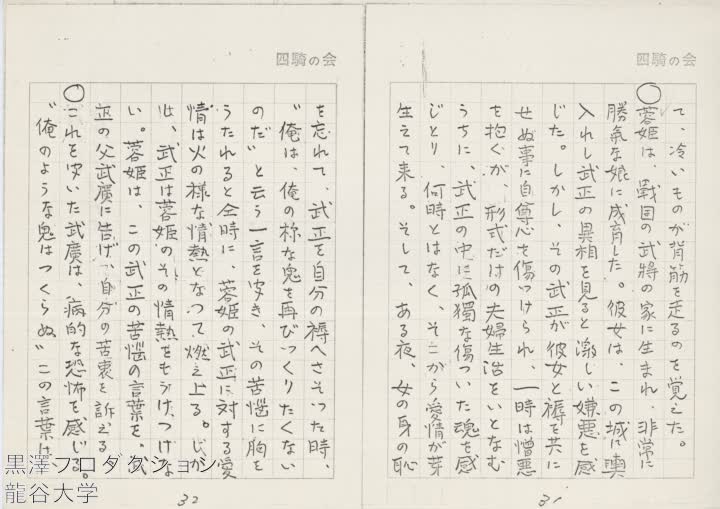 四騎の会
て、冷いものが背筋を走るのを覚えた。
蓉姫は、戦国の武將の家に生まれ、非常に
勝気な娘に成育した。彼女は、この城に輿
入れし武正の異相を見ると激しい嫌悪を感
じた。しかし、その武正が彼女と褥を共に
せぬ事に自尊心を傷つけられ、一時は憎悪
を抱くが、形式だけの夫婦生活をいとなむ
うちに、武正の中に孤獨な傷ついた魂を感
じとり、何時とはなく、そこから愛情が芽
生えて来る。そして、ある夜、女の身の恥
31
四騎の会
を忘れて、武正を自分の褥へさそった時、
“俺は、俺の様な鬼を再びつくりたくない
のだ”と云う一言を聞き、その苦悩に胸を
うたれると同時に、蓉姫の武正に対する愛
情は火の様な情熱となって燃え上る。しか
し、武正は蓉姫のその情熱をもうけつけな
い。蓉姫は、この武正の苦悩の言葉を、武
正の父武廣に告げ、自分の苦衷を訴える
これを聞いた武廣は、病的な恐怖を感じる。
“俺のような鬼はつくらぬ”この言葉は
32
黒澤プロダクション
龍谷大学